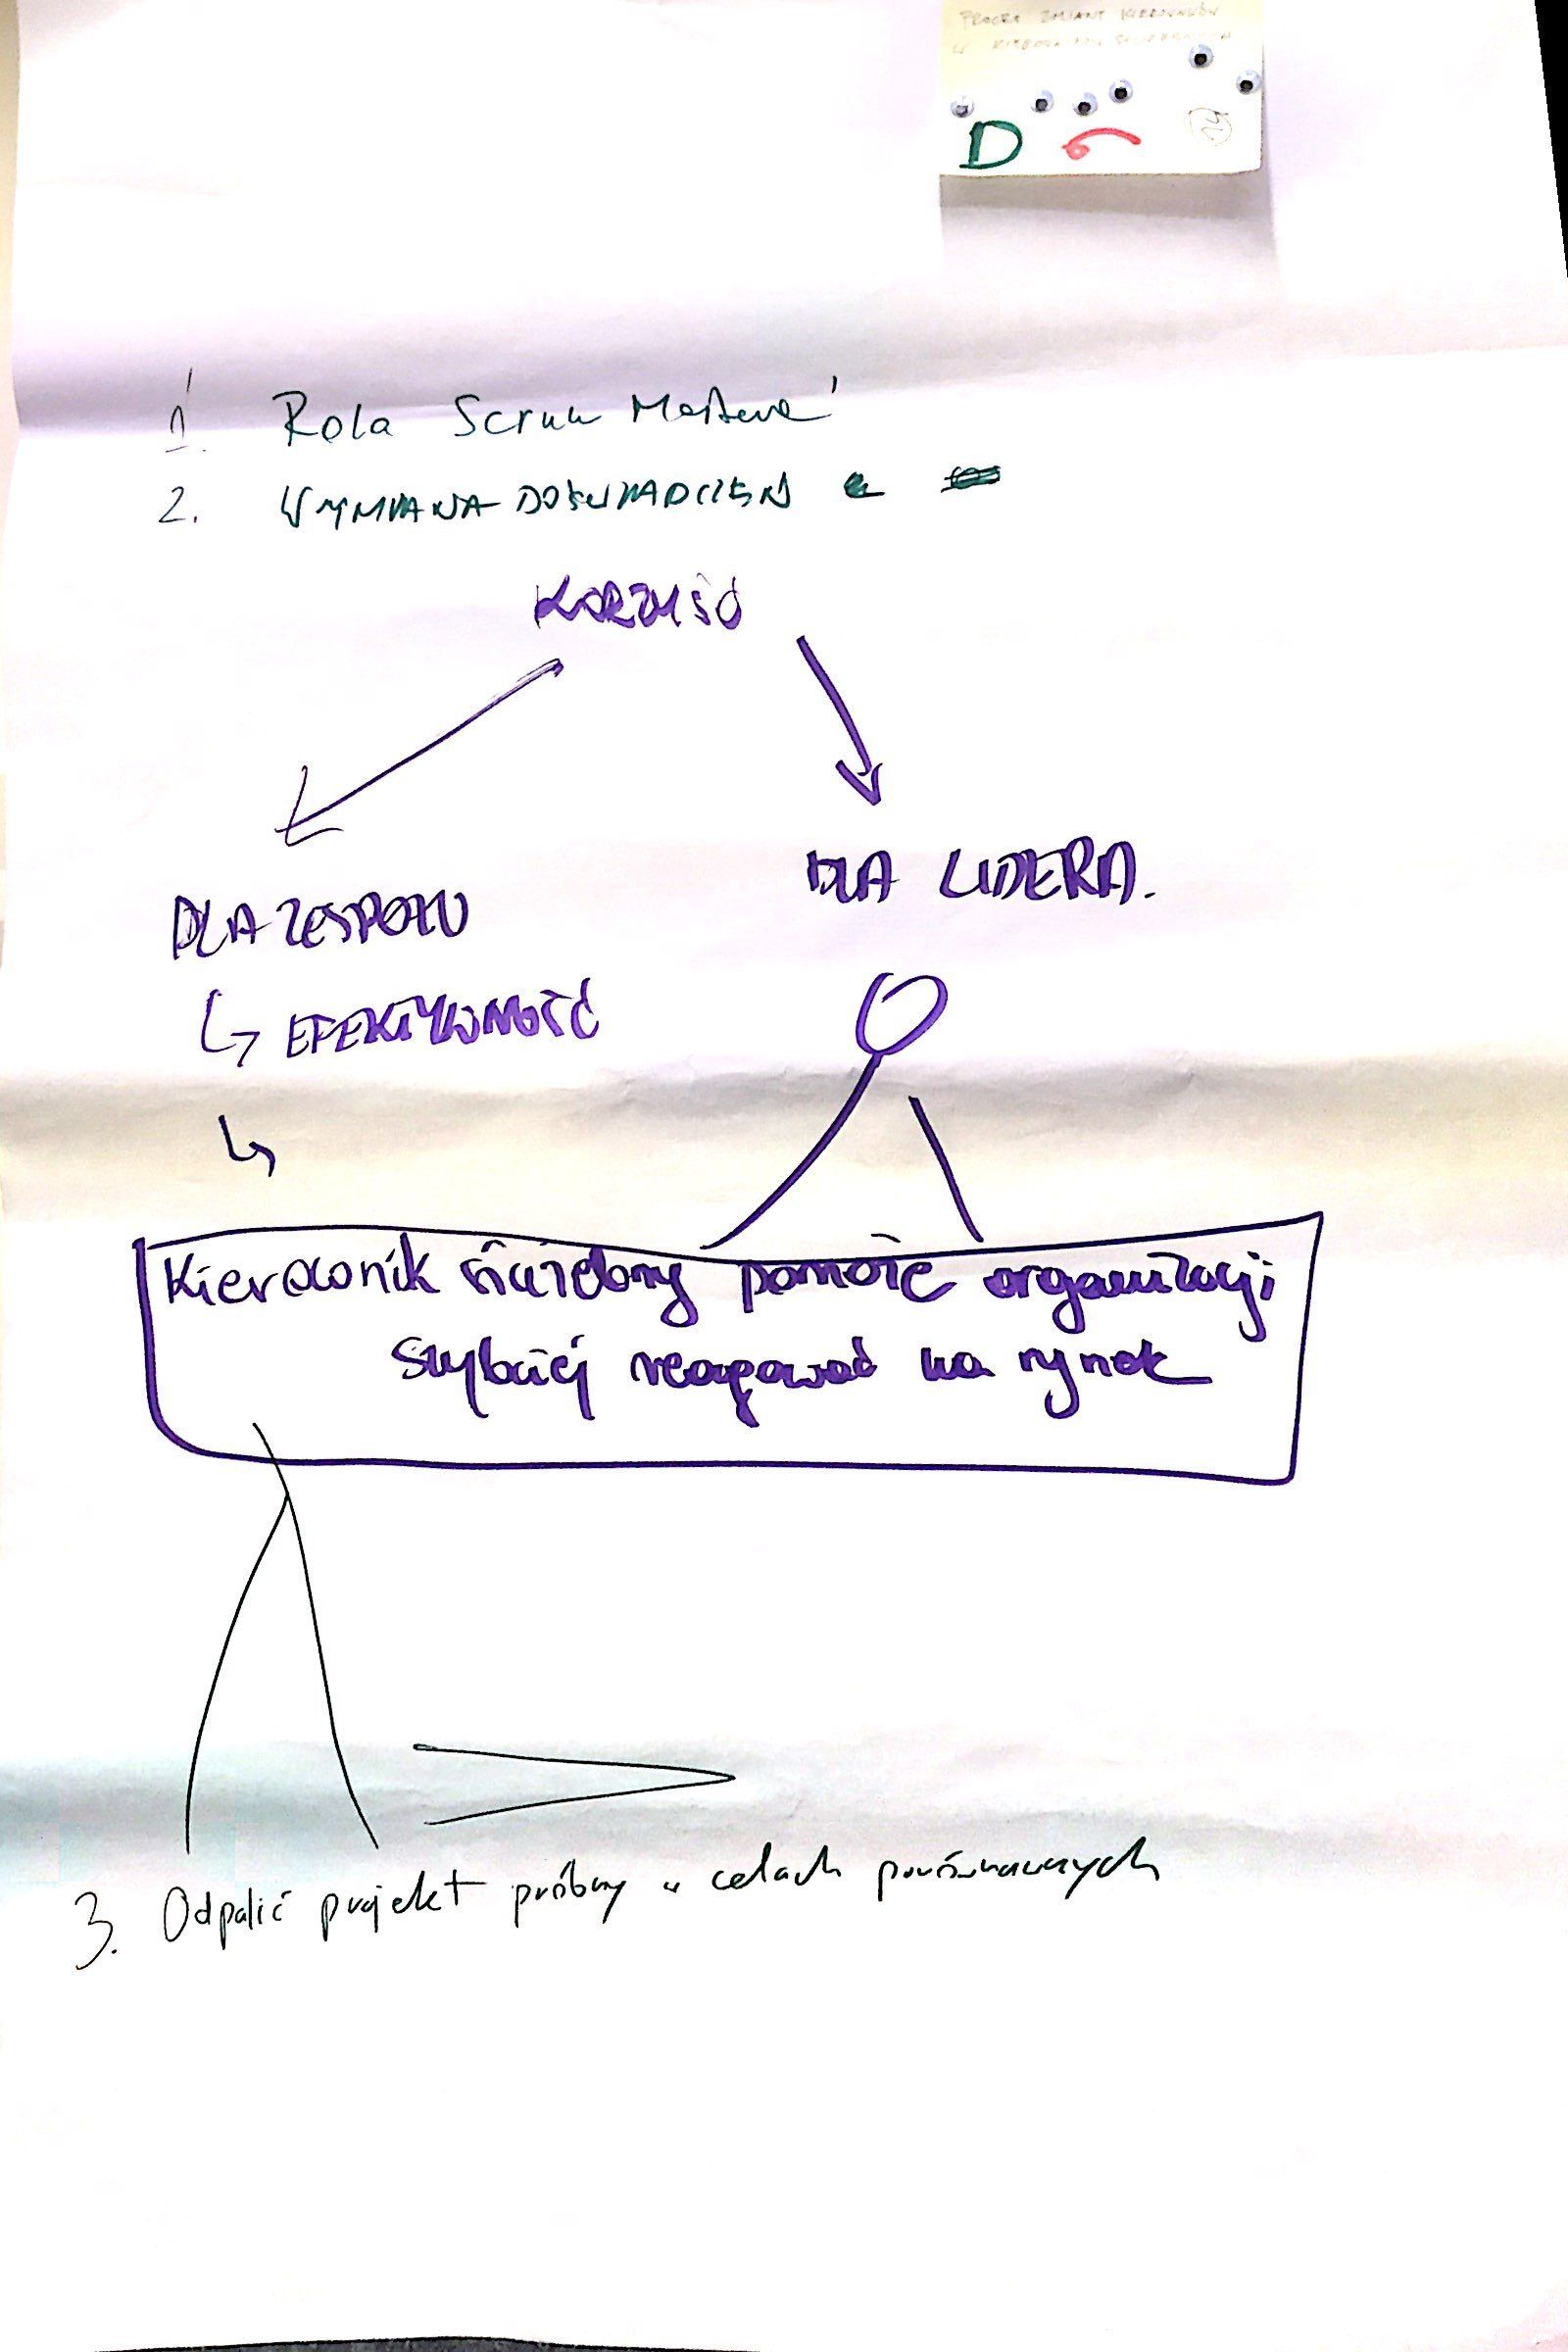 PROCES ZMIANY KIEROWNIKÓW
W KIEROWNIKÓW SŁUŻEBNYCH
D
14
1. Rola Scrum Mastera
2. WYMIANA DOŚWIADCZEŃ
KORZYŚĆ
DLA ZESPOŁU
DLA LIDERA.
EFEKTYWNOŚĆ
Kierownik służebny pomoże organizacji
szybciej reagować na rynek
3. Odpalić projekt próbny w celach porównawczych